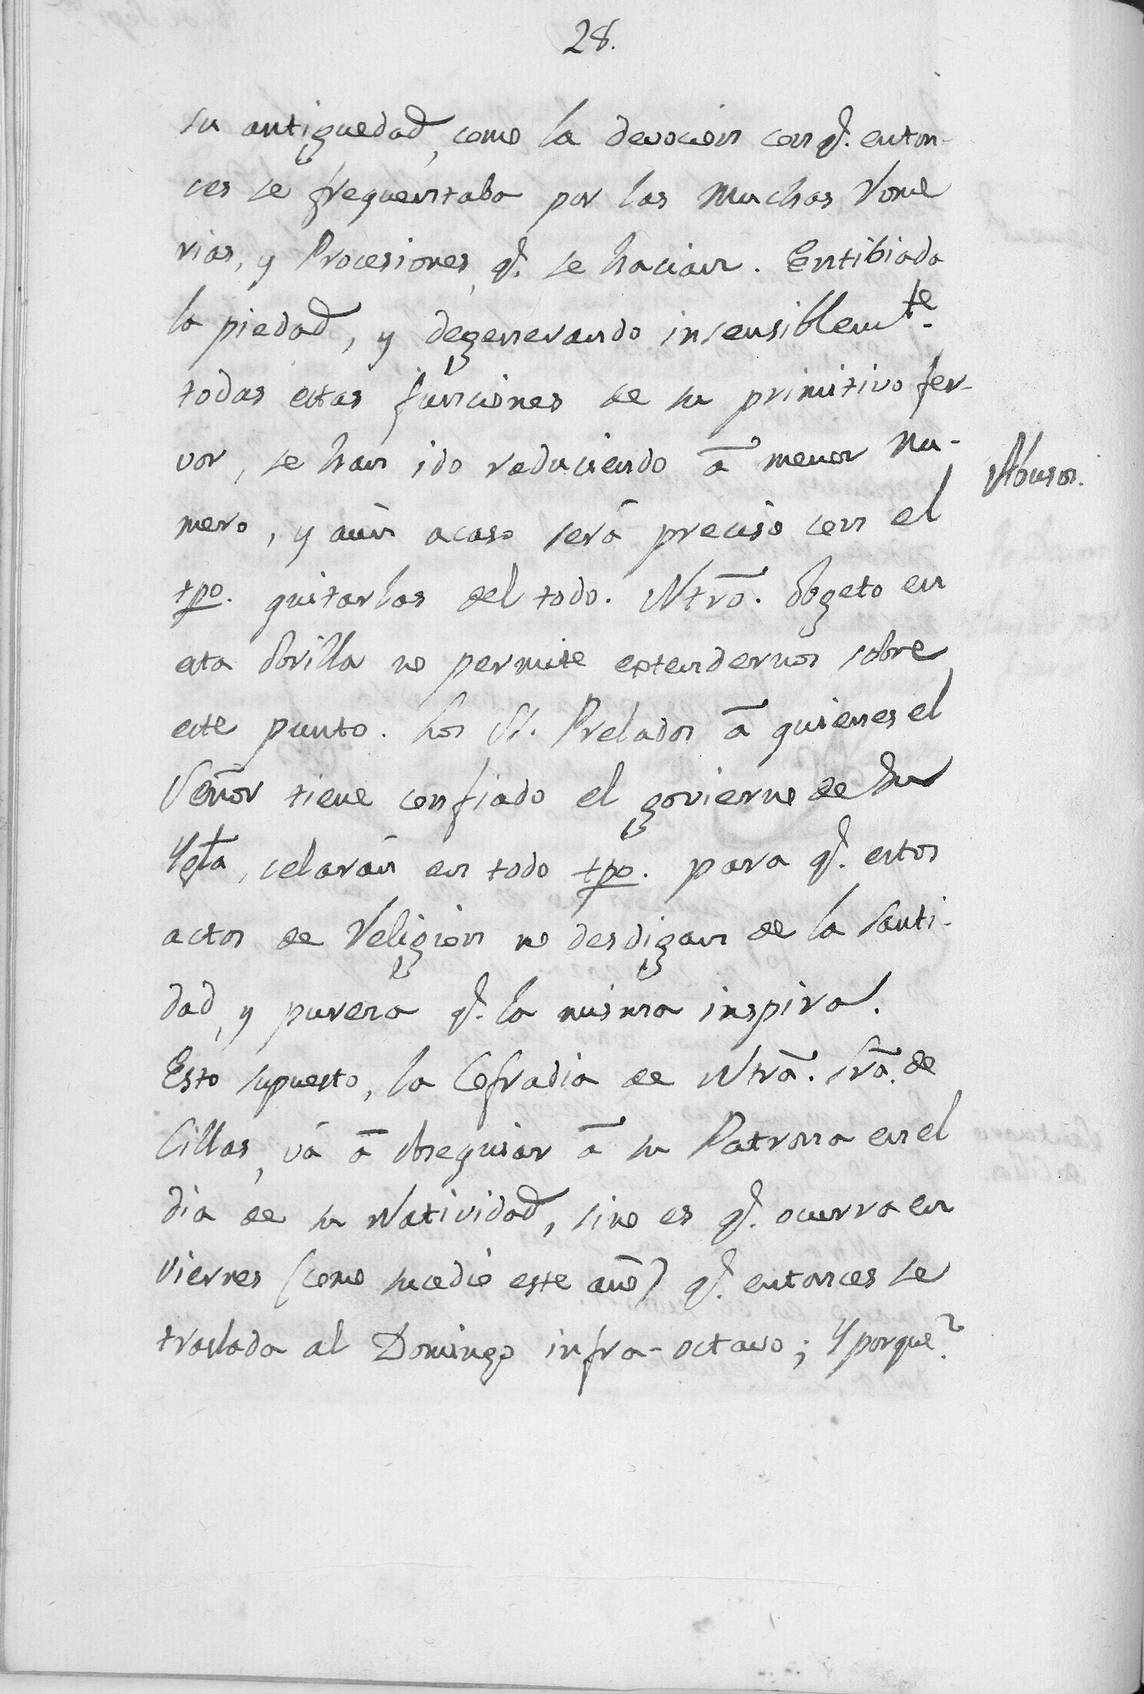 28.
su antiguedad, como la devocion con q.e enton-
ces se frequentaba por las Muchas Rome
rias, y Procesiones, q.e se hacian. Entibiada
la piedad, y degenerando insensiblem.te
todas estas funciones de su primitivo fer-
vor, se han ido reduciendo à menor Nu-
Abusos.
mero, y aùn acaso serà preciso con el
tpo. quitarlas del todo. Ntrõ. Obgeto en
esta Obrilla no permite extendernos sobre
este punto. Los SS. Prelados à quienes el
Señor tiene confiado el govierno de su
Ygla, celaràn en todo tpo. para q.e estos
actos de Religion no desdigan de la santi-
dad, y pureza q.e la misma inspira.
Esto supuesto, la Cofradia de Ntrã. Srã. de
Cillas, và à obsequiar à su Patrona en el
dia de su Natividad, sino es q.e ocurra en
viernes (como sucediò este año) q.e entonces se
traslada al Domingo infra-octavo; Y porque?